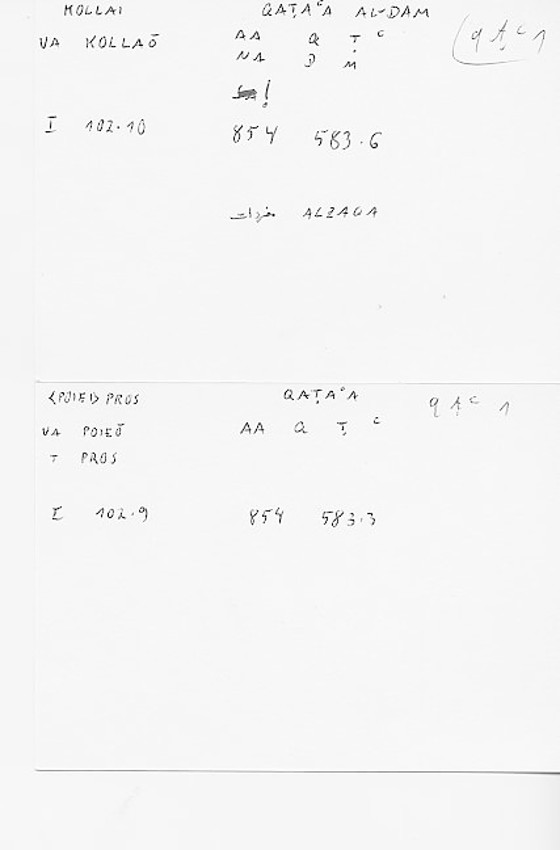 KOLLAI QAṬAʿA AL-DAM
VA KOLLAŌ AA Q Ṭ ʿ (qṭʿ 1
NA D M
!
I 102.10 854 583.6
مفردات ALZAQA
<POIEI> PROS QAṬAʿA qṭʿ 1
VA POIEŌ AA Q Ṭ ʿ
T PROS
I 102.9 854 583.3